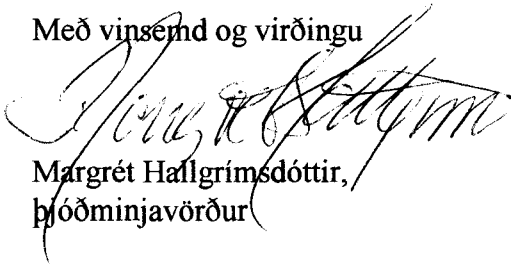 Með vinsemd og virðingu
Margrét Hallgrímsdóttir,
þjóðminjavörður